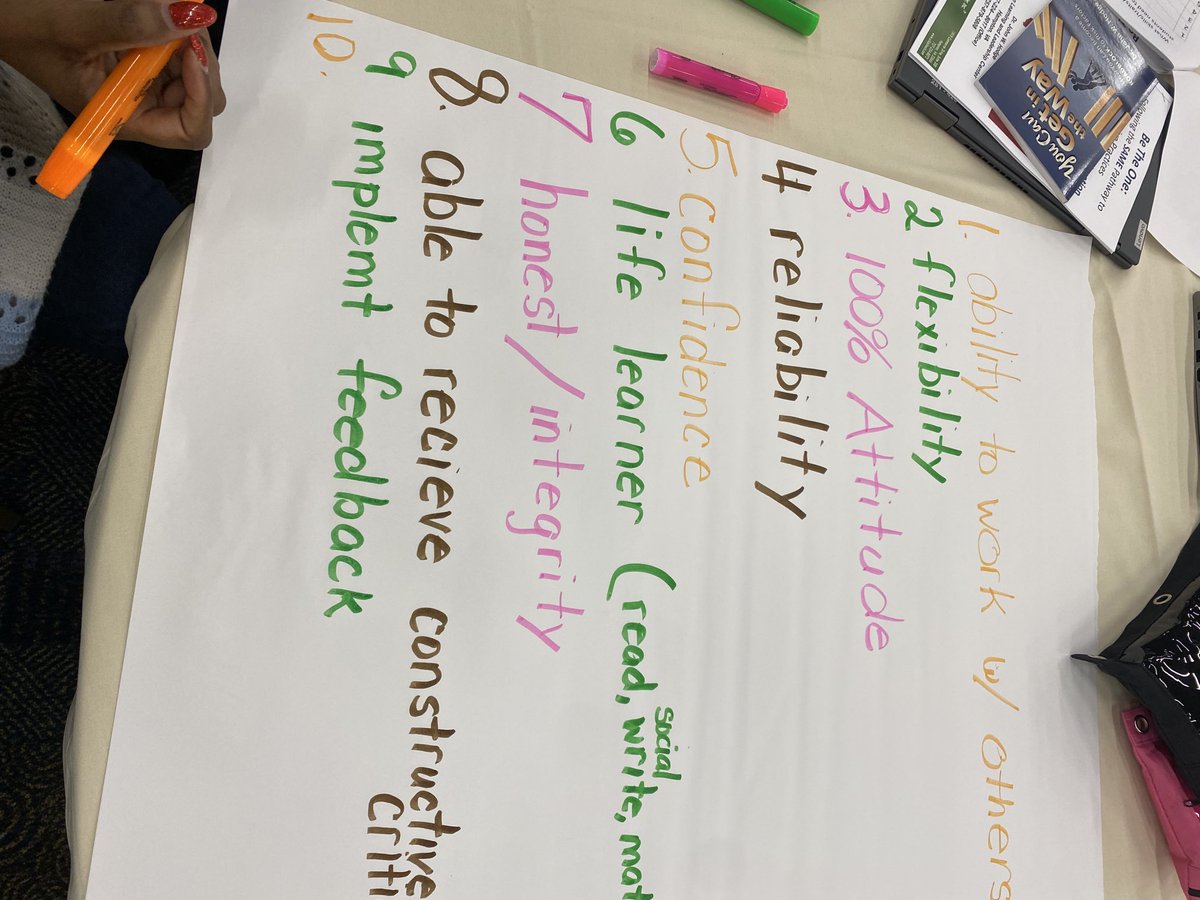 1. ability to work w/ others
2 flexibility
3. 100% Attitude
4 reliability
5. confidence
6 life learner (read, write, mat
social
7 honest/integrity
8. able to recieve constructive
criti
9 implemt feedback
10.
You Can't
Get in
the Way
Be The One:
Following the SAME Pathway to
Dr. John W. Hodge
Learning and Leadership Center
Hampton, VA